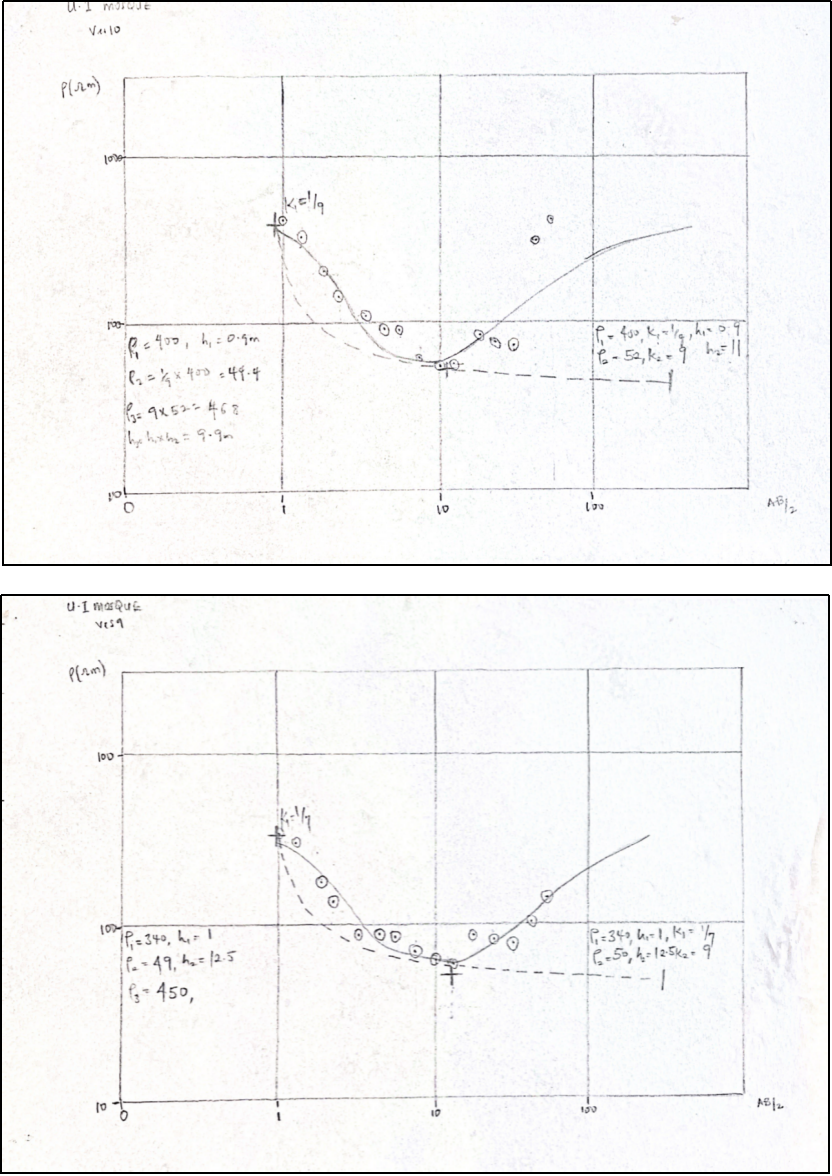 U.I MOSQUE
Ves10
ρ(Ωm)
1000
K₁=1/9
100
ρ₁ = 400, h₁ = 0.9m
ρ₂ = 1/9 × 400 = 44.4
ρ₃ = 9×52 = 468
= 9.9m
ρ₁ = 400, K₁=1/9, h₁=0.9
ρ₂ = 52, K₂ = 9 h₂=11
10
0
1
10
100
AB/2
U.I MOSQUE
Ves9
ρ(Ωm)
1000
K₁=1/7
100
ρ₁=340, h₁= 1
ρ₂= 49, h₂= 12.5
ρ₃ = 450,
ρ₁=340, h₁=1, K₁=1/7
ρ₂=50, h₂=12.5 K₂= 9
10
0
1
10
100
AB/2